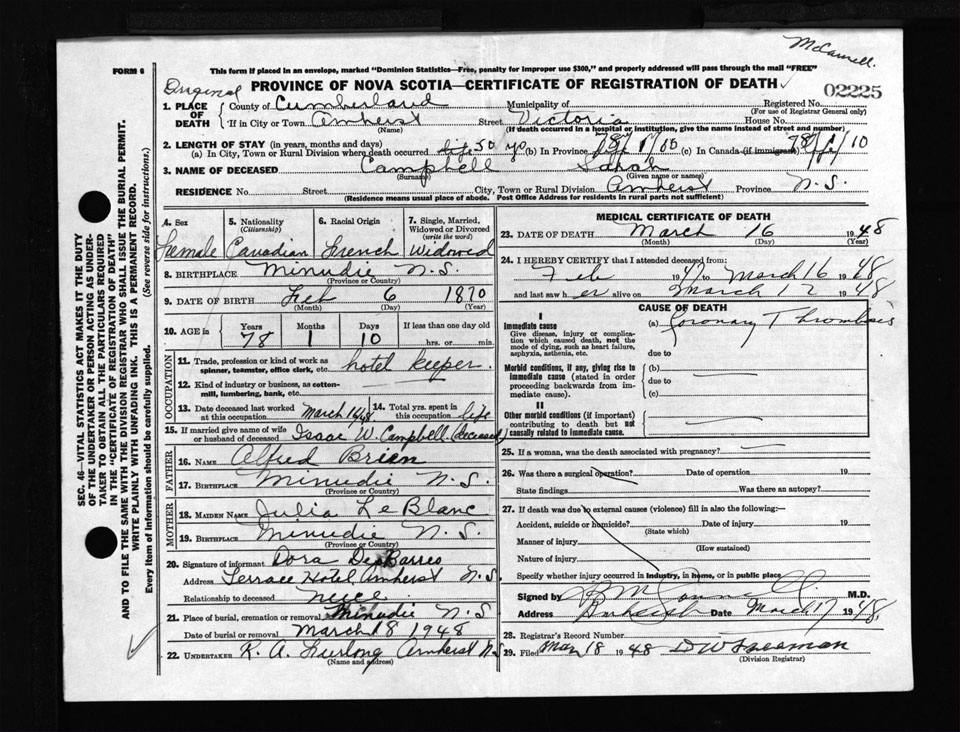 McCarnell.
FORM 6
This form if placed in an envelope, marked "Dominion Statistics—Free, penalty for improper use $300," and properly addressed will pass through the mail "FREE"
Original
PROVINCE OF NOVA SCOTIA—CERTIFICATE OF REGISTRATION OF DEATH
02225
1. PLACE OF DEATH
County of Cumberland Municipality of Registered No.
(For use of Registrar General only)
If in City or Town Amherst Street Victoria House No.
(Name) (If death occurred in a hospital or institution, give the name instead of street and number)
2. LENGTH OF STAY (in years, months and days)
(a) In City, Town or Rural Division where death occurred 50 yrs (b) In Province (c) In Canada (if immigrant) 78/1/10
3. NAME OF DECEASED Campbell Sarah
(Surname) (Given name or names)
RESIDENCE No. Street City, Town or Rural Division Amherst Province N.S.
(Residence means usual place of abode. Post Office Address for residents in rural parts not sufficient)
4. Sex Female
5. Nationality (Citizenship) Canadian
6. Racial Origin French
7. Single, Married, Widowed or Divorced (write the word) Widowed
8. BIRTHPLACE Minudie N.S.
(Province or Country)
9. DATE OF BIRTH Feb 6 1870
(Month) (Day) (Year)
10. AGE in Years Months Days If less than one day old
78 1 10 hrs. or min.
OCCUPATION
11. Trade, profession or kind of work as spinner, teamster, office clerk, etc. hotel keeper.
12. Kind of industry or business, as cotton-mill, lumbering, bank, etc.
13. Date deceased last worked at this occupation March 16/48
14. Total yrs. spent in this occupation life
15. If married give name of wife or husband of deceased Isaac W. Campbell (deceased)
FATHER
16. NAME Alfred Brien
17. BIRTHPLACE Minudie N.S.
(Province or Country)
MOTHER
18. MAIDEN NAME Julia LeBlanc
19. BIRTHPLACE Minudie N.S.
(Province or Country)
20. Signature of informant Dora DesBarres
Address Terrace Hotel Amherst N.S.
Relationship to deceased niece.
21. Place of burial, cremation or removal Minudie N.S.
Date of burial or removal March 18 1948
22. UNDERTAKER R. A. Furlong Amherst N.S.
(Name and address)
MEDICAL CERTIFICATE OF DEATH
23. DATE OF DEATH March 16 1948
(Month) (Day) (Year)
24. I HEREBY CERTIFY that I attended deceased from:
Feb to March 16 1948
and last saw her alive on March 12 1948
CAUSE OF DEATH
I
Immediate cause
Give disease, injury or complication which caused death, not the mode of dying, such as heart failure, asphyxia, asthenia, etc.
(a) Coronary Thrombosis
due to
Morbid conditions, if any, giving rise to immediate cause (stated in order proceeding backwards from immediate cause).
(b)
due to
(c)
II
Other morbid conditions (if important) contributing to death but not causally related to immediate cause.
25. If a woman, was the death associated with pregnancy?
26. Was there a surgical operation? Date of operation 19
State findings Was there an autopsy?
27. If death was due to external causes (violence) fill in also the following:—
Accident, suicide or homicide? Date of injury 19
(State which)
Manner of injury
(How sustained)
Nature of injury
Specify whether injury occurred in industry, in home, or in public place
Signed by M.D.
Address Date March 17 1948
28. Registrar's Record Number
29. Filed Mar 18 1948 D W Freeman
(Division Registrar)
SEC. 46—VITAL STATISTICS ACT MAKES IT THE DUTY
OF THE UNDERTAKER OR PERSON ACTING AS UNDER-
TAKER TO OBTAIN ALL THE PARTICULARS REQUIRED
IN THE "CERTIFICATE OF REGISTRATION OF DEATH"
AND TO FILE THE SAME WITH THE DIVISION REGISTRAR WHO SHALL ISSUE THE BURIAL PERMIT.
WRITE PLAINLY WITH UNFADING INK. THIS IS A PERMANENT RECORD.
Every item of information should be carefully supplied. (See reverse side for instructions.)